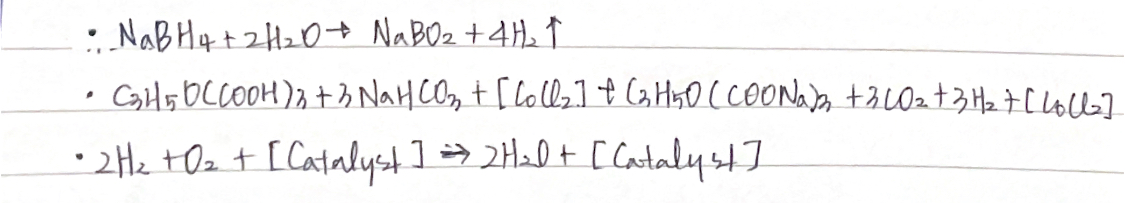 ∴ NaBH4 + 2H2O → NaBO2 + 4H2 ↑
• C3H5O(COOH)3 + 3NaHCO3 + [CoCl2] → C3H5O(COONa)3 + 3CO2 + 3H2 + [CoCl2]
• 2H2 + O2 + [Catalyst] ⇒ 2H2O + [Catalyst]